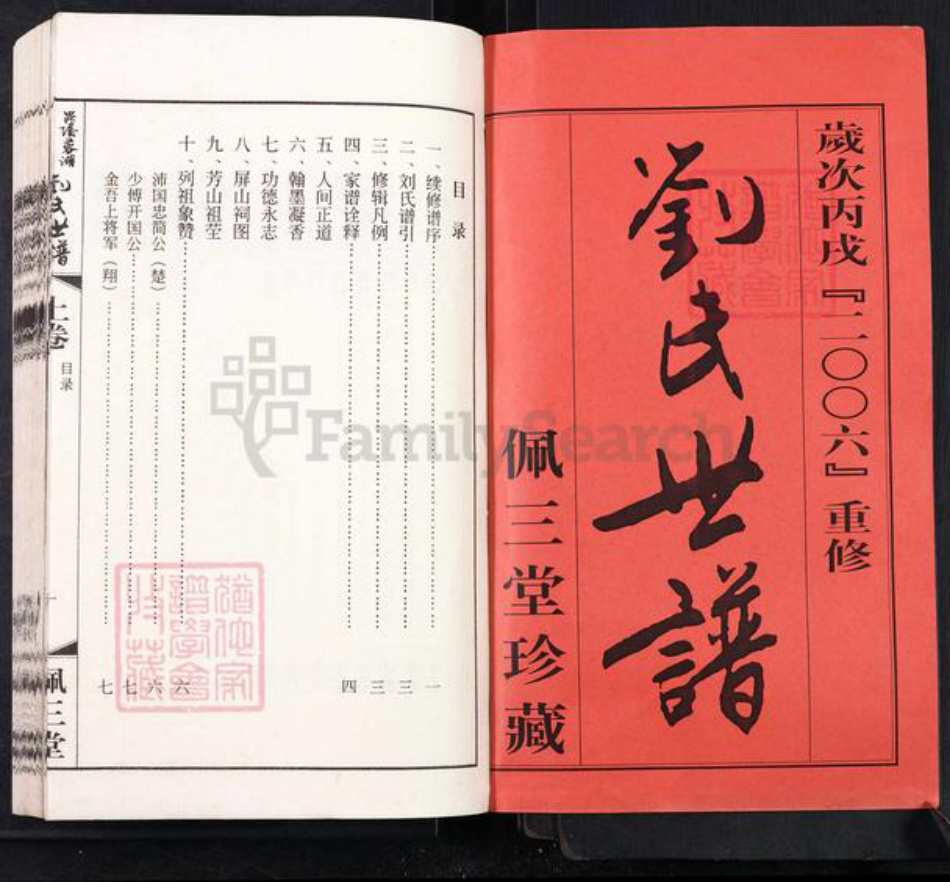 歲次丙戌『二〇〇六』重修
劉氏世譜
佩三堂珍藏
目录
一、续修谱序 一
二、刘氏谱引 三
三、修辑凡例 三
四、家谱诠释 四
五、人间正道
六、翰墨凝香
七、功德永志
八、屏山祠图
九、芳山祖茔
十、列祖象赞 六
沛国忠简公（楚） 六
少傅开国公 七
金吾上将军（翔） 七
氏世譜
上卷
目录
佩三堂
FamilySearch